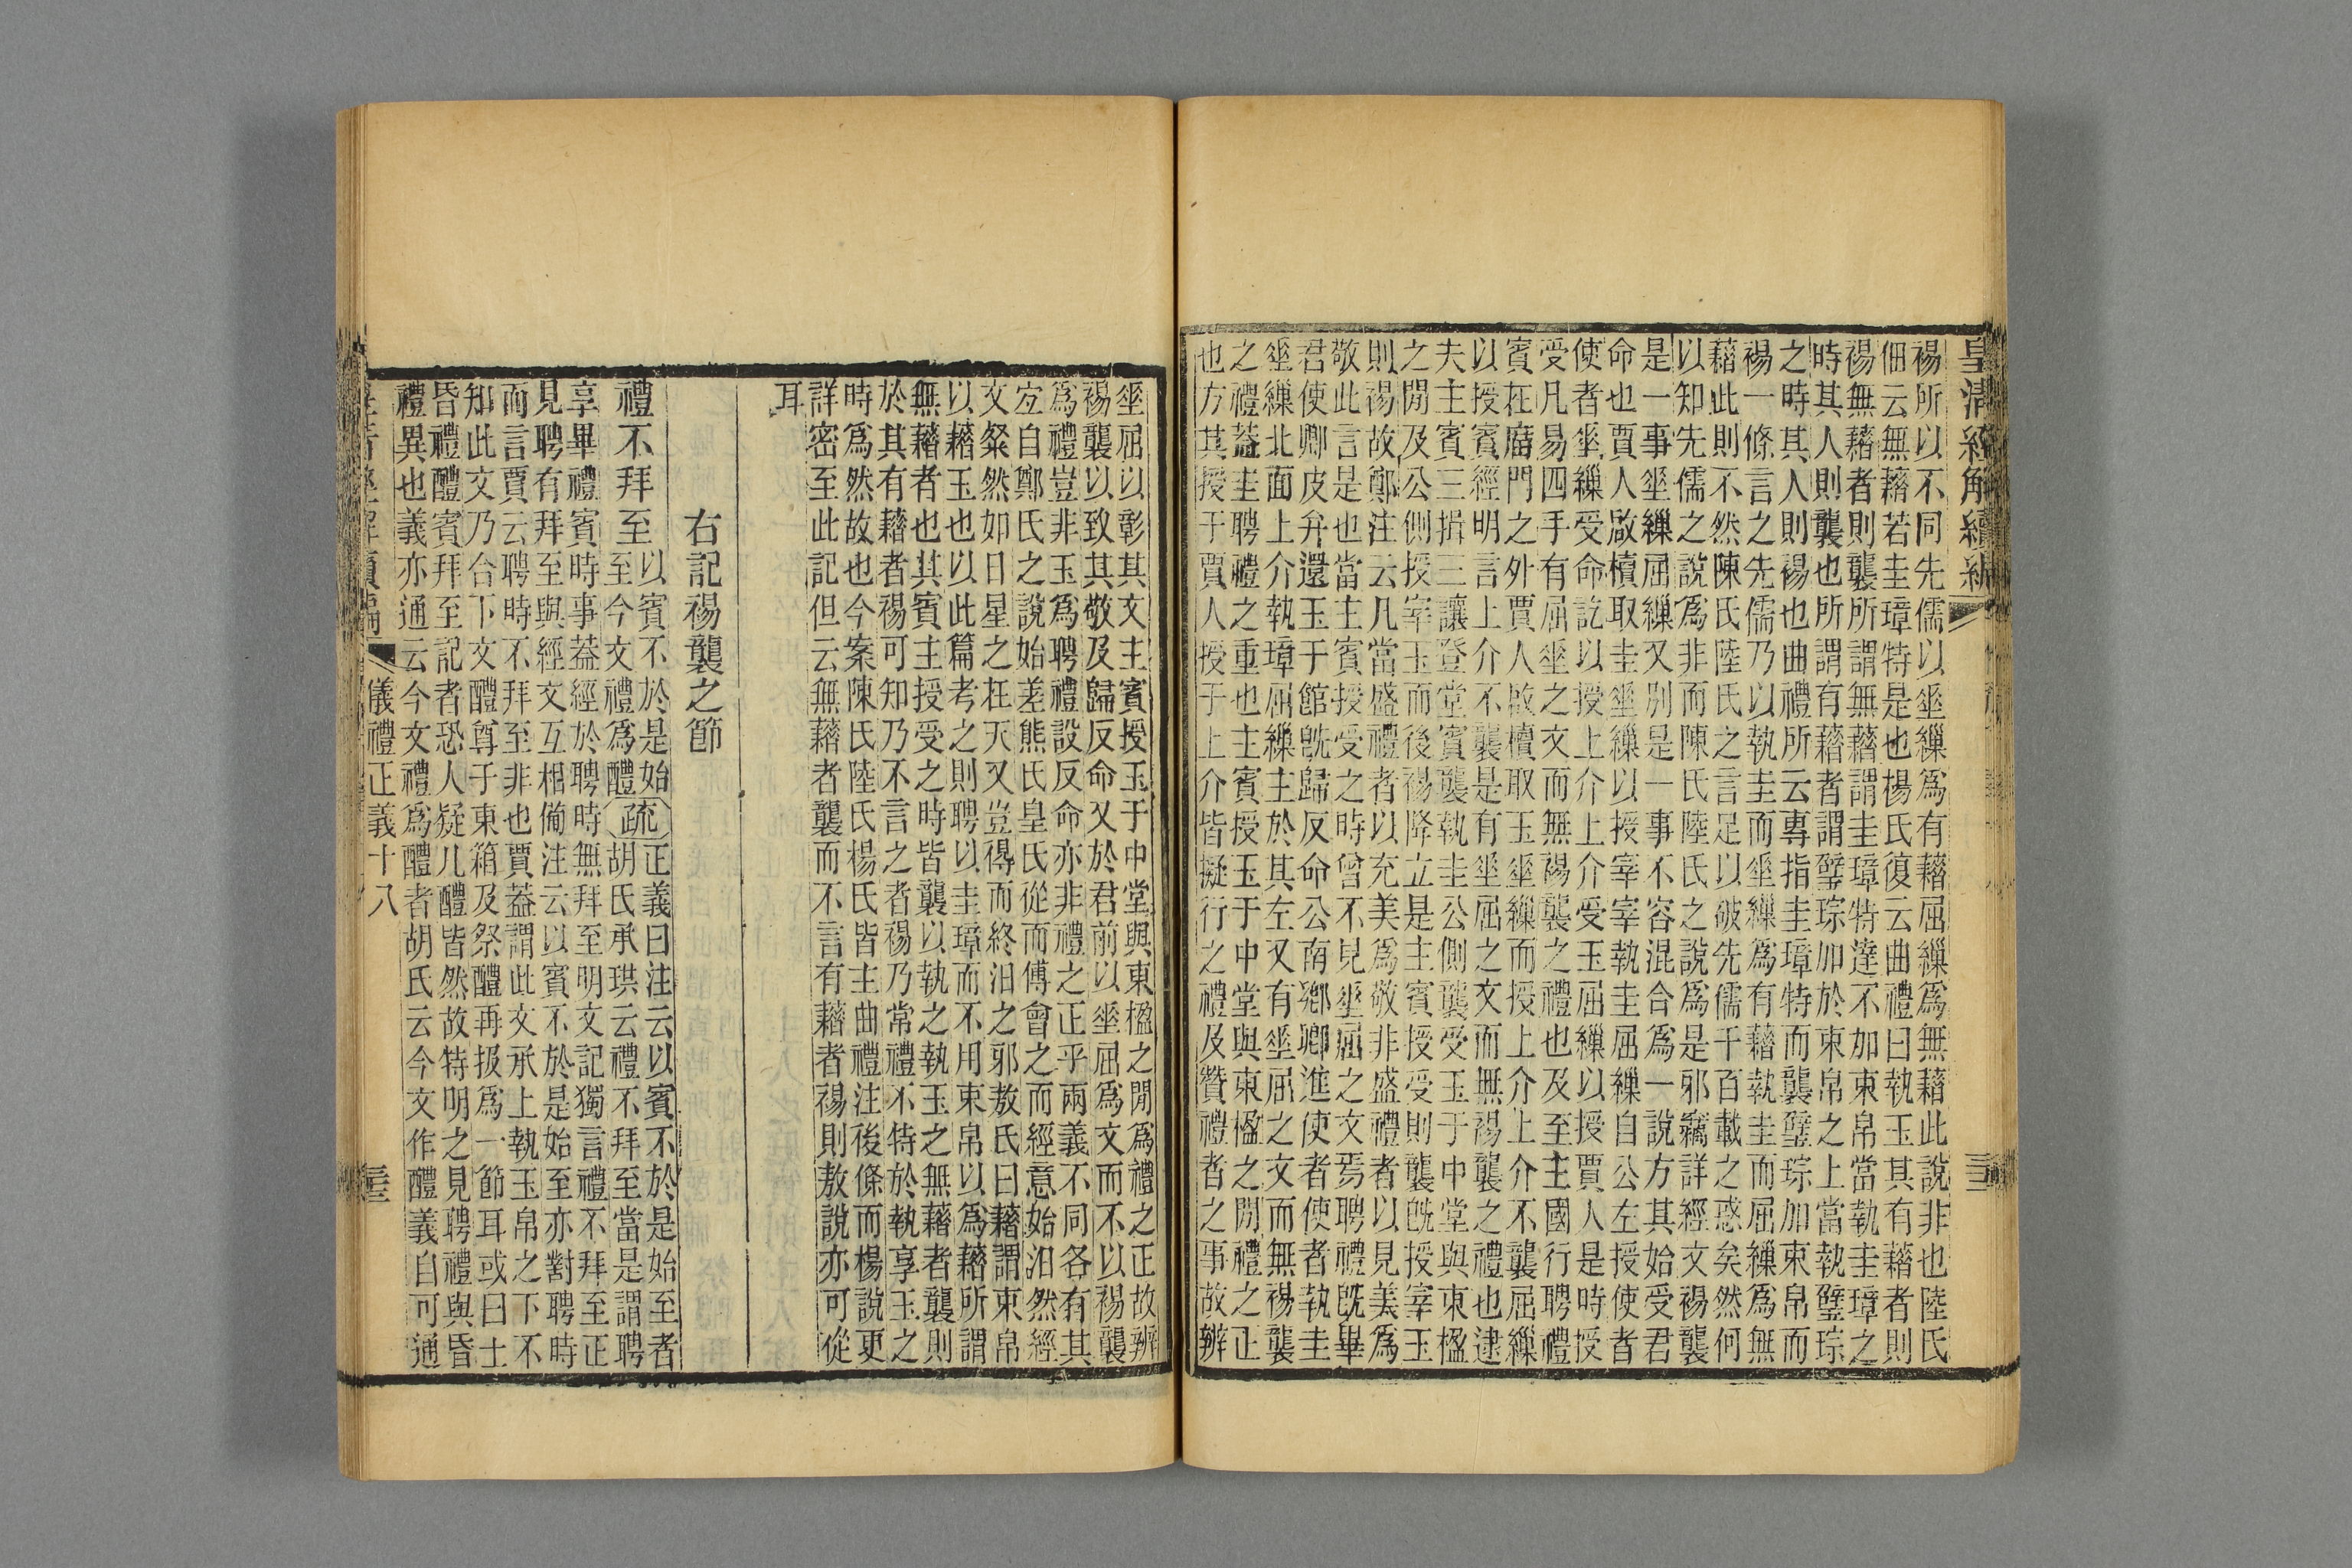 皇清經解續編
三三
裼所以不同先儒以垂繅爲有藉屈繅爲無藉此說非也陸氏
佃云無藉若圭璋特是也楊氏復云曲禮曰執玉其有藉者則
裼無藉者則襲所謂無藉謂圭璋特達不加束帛當執圭璋之
時其人則襲也所謂有藉者謂璧琮加於束帛之上當執璧琮
之時其人則裼也曲禮所云專指圭璋特而襲璧琮加束帛而
裼一條言之先儒乃以執圭而垂繅爲有藉執圭而屈繅爲無
藉此則不然陳氏陸氏之言足以破先儒千百載之惑矣然何
以知先儒之說爲非而陳氏陸氏之說爲是邪竊詳經文裼襲
是一事垂繅屈繅又別是一事不容混合爲一說方其始受君
命也賈人啟櫝取圭垂繅以授宰宰執圭屈繅自公左授使者
使者垂繅受命訖以授上介上介受玉屈繅以授賈人是時授
受凡易四手有屈垂之文而無裼襲之禮也及至主國行聘禮
賓在廟門之外賈人啟櫝取玉垂繅而授上介上介不襲屈繅
以授賓經明言上介不襲是有垂屈之文而無裼襲之禮也逮
夫主賓三揖三讓登堂賓襲執圭公側襲受玉于中堂與東楹
之閒及公側授宰玉而後裼降立是主賓授受則襲旣授宰玉
則裼故鄭注云凡當盛禮者以充美爲敬非盛禮者以見美爲
敬此言是也當主賓授受之時曾不見垂屈之文焉聘禮旣畢
君使卿皮弁還玉于館旣歸反命公南鄉卿進使者使者執圭
垂繅北面上介執璋屈繅主於其左又有垂屈之文而無裼襲
之禮蓋圭聘禮之重也主賓授玉于中堂與東楹之閒禮之正
也方其授于賈人授于上介皆擬行之禮及贊禮者之事故辨
垂屈以彰其文主賓授玉于中堂與東楹之閒爲禮之正故辨
裼襲以致其敬及歸反命又於君前以垂屈爲文而不以裼襲
爲禮豈非玉爲聘禮設反命亦非禮之正乎兩義不同各有其
宜自鄭氏之說始差熊氏皇氏從而傅會之而經意始汩然經
文粲然如日星之在天又豈得而終汩之邪敖氏曰藉謂束帛
以藉玉也以此篇考之則聘以圭璋而不用束帛以爲藉所謂
無藉者也其賓主授受之時皆襲以執之執玉之無藉者襲則
於其有藉者裼可知乃不言之者裼乃常禮不特於執享玉之
時爲然故也今案陳氏陸氏楊氏皆主曲禮注後條而楊說更
詳密至此記但云無藉者襲而不言有藉者裼則敖說亦可從
耳
右記裼襲之節
禮不拜至以賓不於是始
至今文禮爲醴疏正義曰注云以賓不於是始至者
胡氏承珙云禮不拜至當是謂聘
享畢禮賓時事蓋經於聘時無拜至明文記獨言禮不拜至正
見聘有拜至與經文互相備注云以賓不於是始至亦對聘時
而言賈云聘時不拜至非也賈蓋謂此文承上執玉帛之下不
知此文乃合下文醴尊于東箱及祭醴再扱爲一節耳或曰士
昏禮醴賓拜至記者恐人疑凡醴皆然故特明之見聘禮與昏
禮異也義亦通云今文禮爲醴者胡氏云今文作醴義自可通
儀禮正義十八
三三